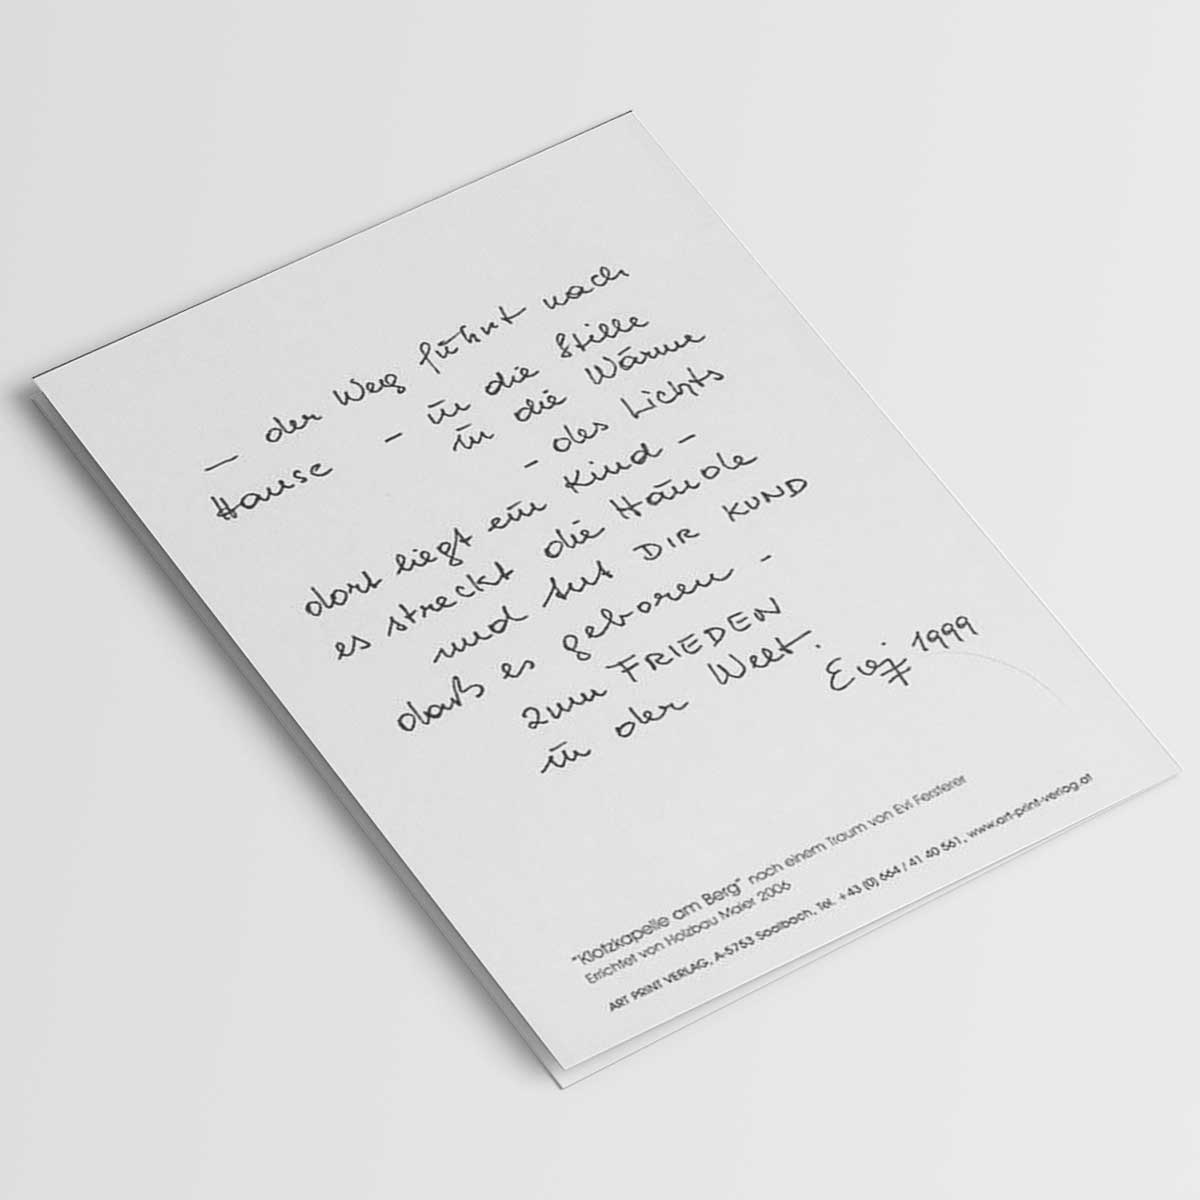 — der Weg führt nach
Hause - in die Stille
in die Wärme
- des Lichts
dort liegt ein Kind -
es streckt die Hände
und tut DIR KUND
daß es geboren -
zum FRIEDEN
in der Welt.
Evi F 1999
"Klotzkapelle am Berg" nach einem Traum von Evi Fersterer
Errichtet von Holzbau Maier 2006
ART PRINT VERLAG, A-5753 Saalbach, Tel. +43 (0) 664 / 41 40 561, www.art-print-verlag.at